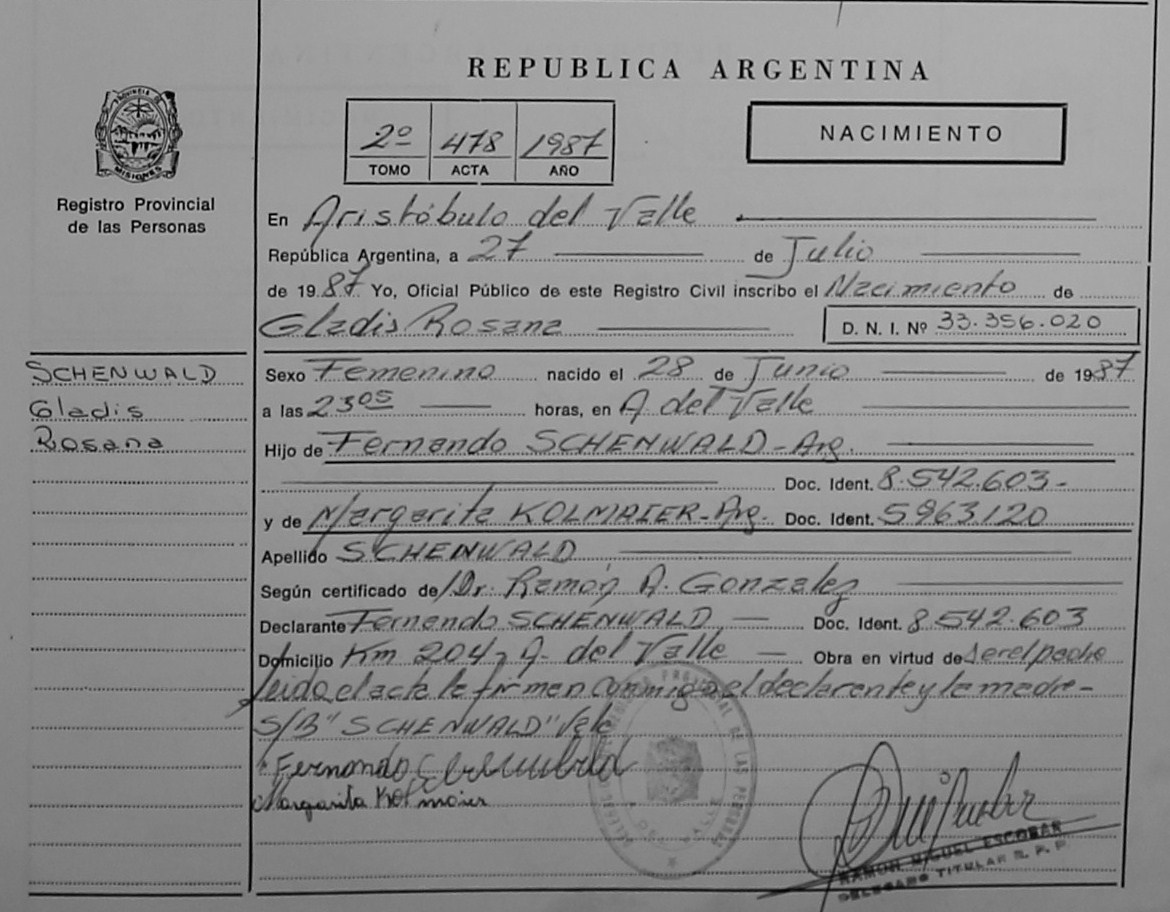 REPUBLICA ARGENTINA
PROVINCIA DE MISIONES
Registro Provincial
de las Personas
2º 478 1987
TOMO ACTA AÑO
NACIMIENTO
En Aristóbulo del Valle
República Argentina, a 27 de Julio
de 1987 Yo, Oficial Público de este Registro Civil inscribo el Nacimiento de
Gladis Rosana D. N. I. Nº 33.356.020
SCHENWALD
Gladis
Rosana
Sexo Femenino nacido el 28 de Junio de 1987
a las 23 05 horas, en A. del Valle
Hijo de Fernando SCHENWALD - Arg.
Doc. Ident. 8.542.603-
y de Margarita KOLMAIER - Arg. Doc. Ident. 5963.120
Apellido SCHENWALD
Según certificado de/Dr. Ramón A. Gonzalez
Declarante Fernando SCHENWALD Doc. Ident. 8.542.603
Domicilio Km 204, A. del Valle Obra en virtud de ser el padre
leida el acta la firman conmigo el declarante y la madre-
S/B "SCHENWALD" Vale
Fernando
Margarita Kolmaier
RAMON MIGUEL ESCOBAR
DELEGADO TITULAR R. P. P.